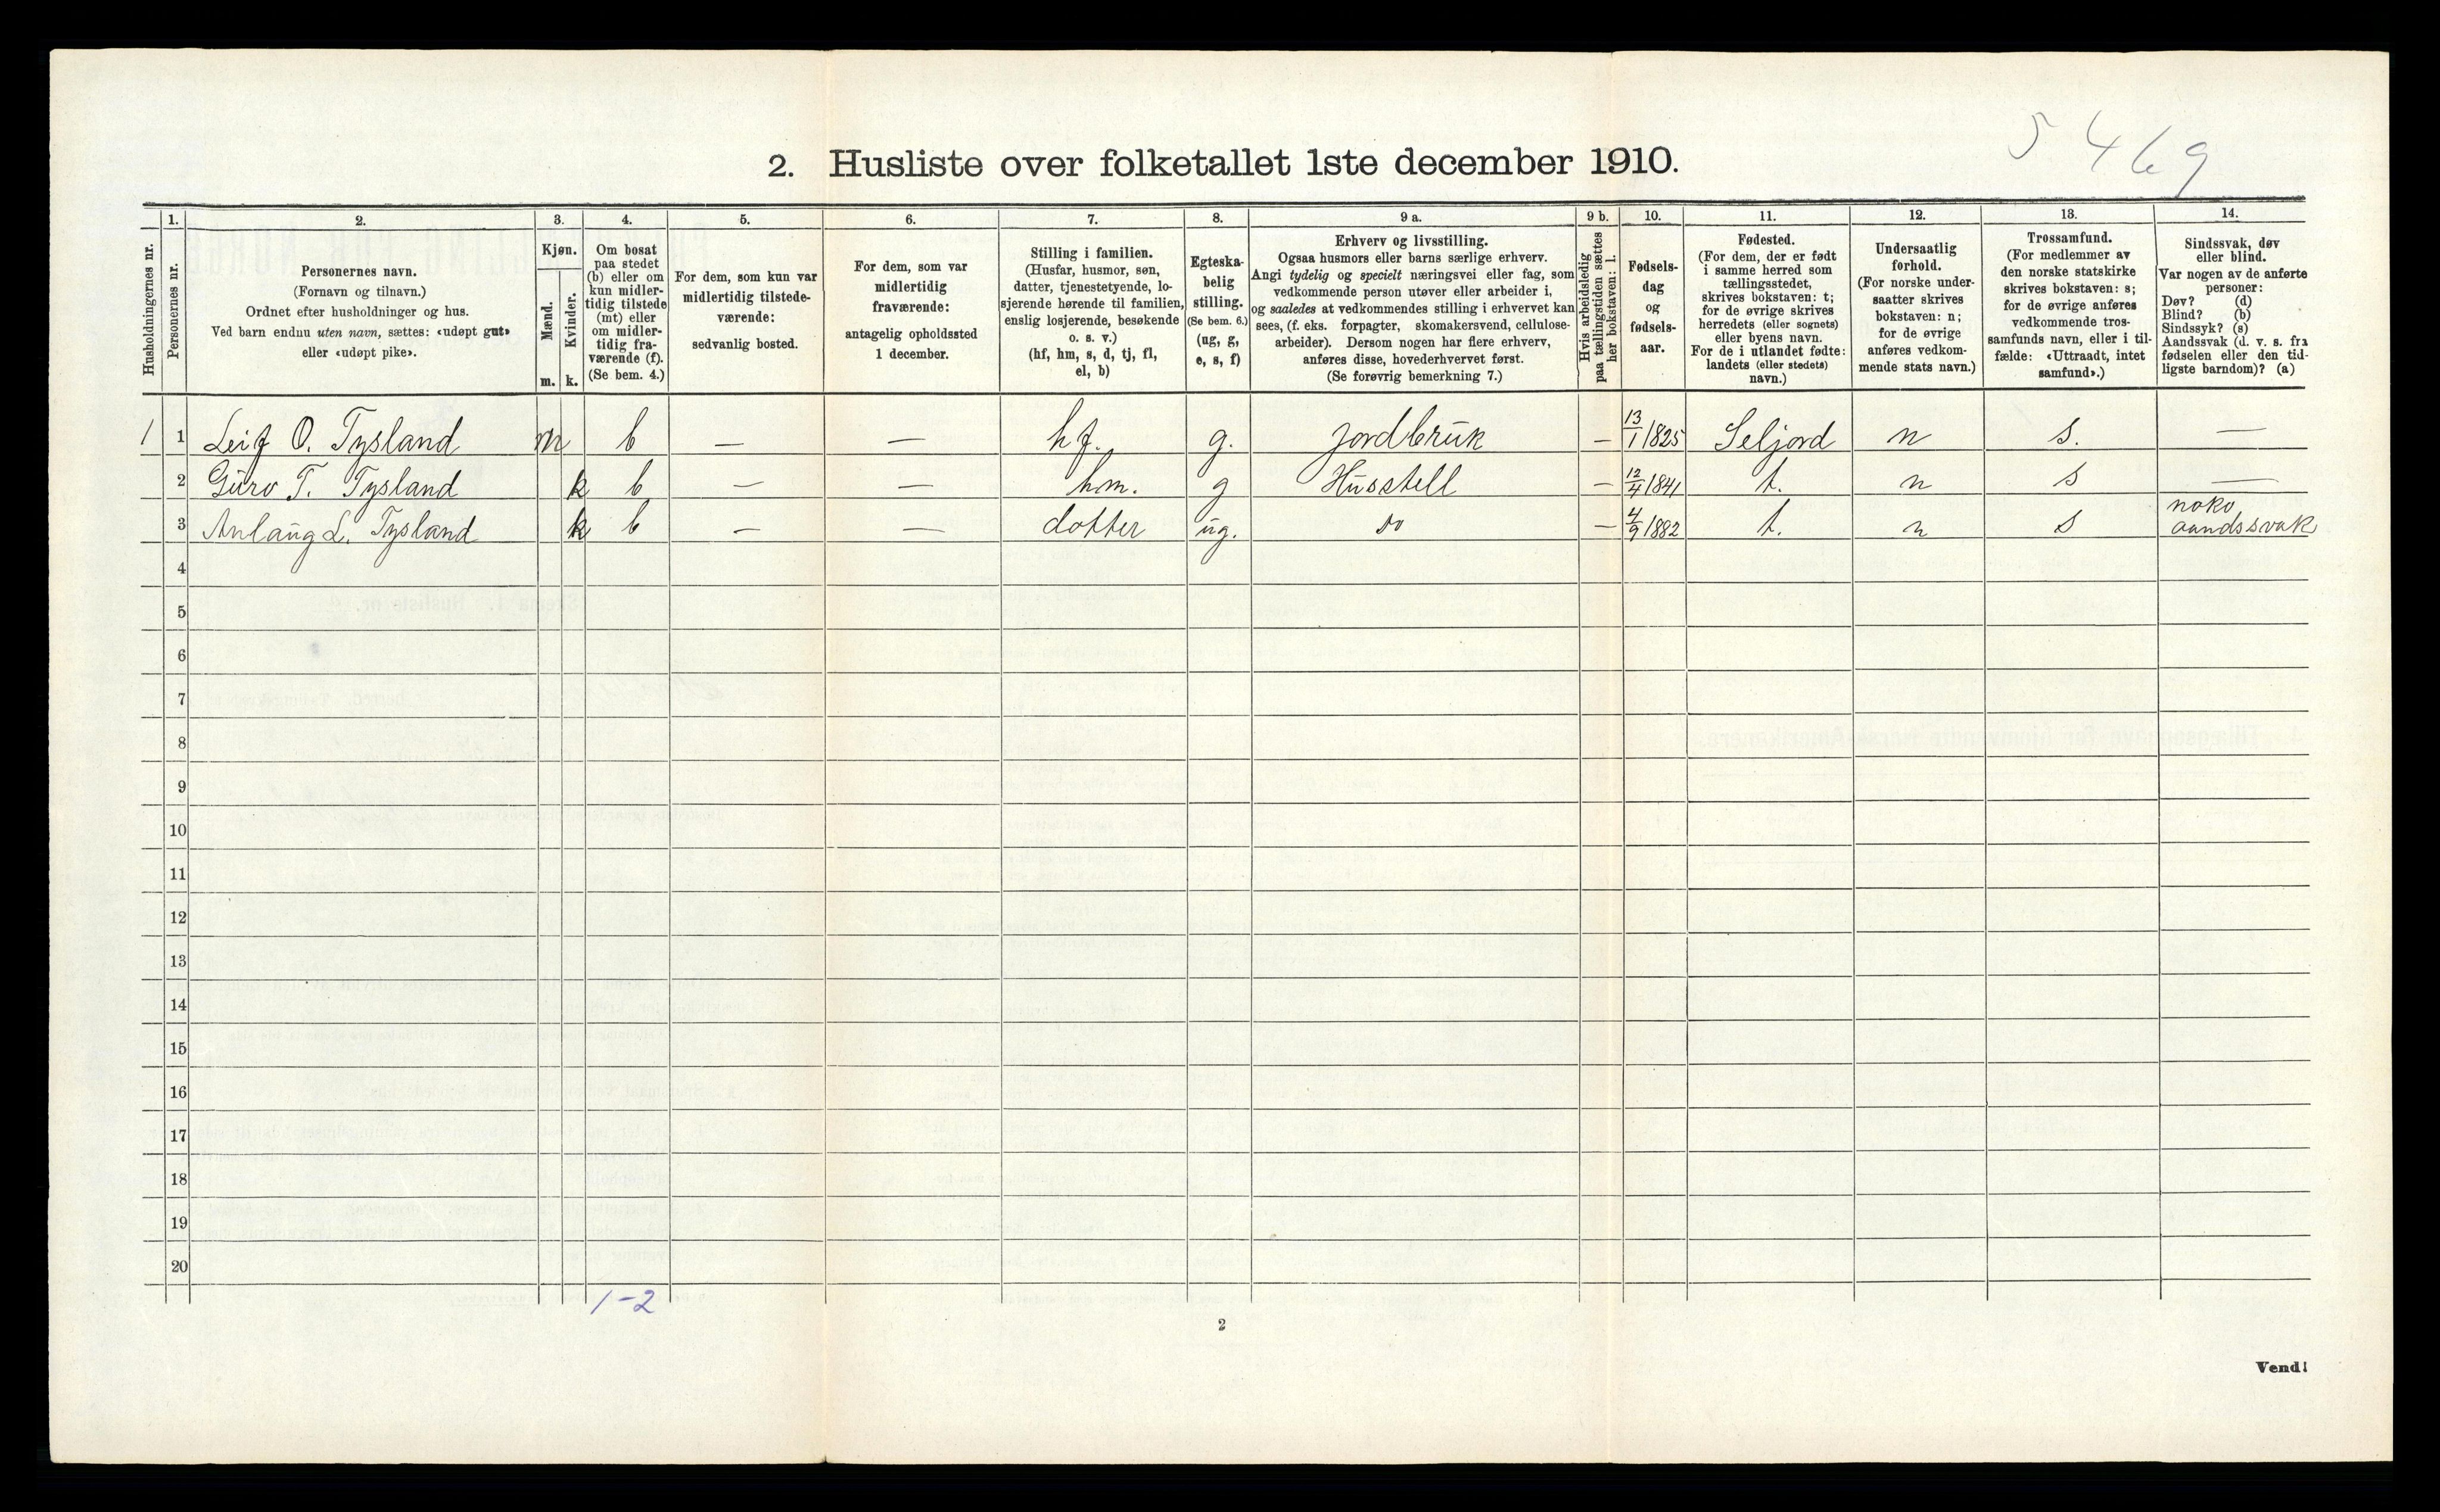 5469
2. Husliste over folketallet 1ste december 1910.
Husholdningernes nr.
1.
Personernes nr.
2.
Personernes navn.
(Fornavn og tilnavn.)
Ordnet efter husholdninger og hus.
Ved barn endnu uten navn, sættes: «udøpt gut»
eller «udøpt pike».
3.
Kjøn.
Mænd.
m.
Kvinder.
k.
4.
Om bosat
paa stedet
(b) eller om
kun midler-
tidig tilstede
(mt) eller
om midler-
tidig fra-
værende (f).
(Se bem. 4.)
5.
For dem, som kun var
midlertidig tilstede-
værende:
sedvanlig bosted.
6.
For dem, som var
midlertidig
fraværende:
antagelig opholdssted
1 december.
7.
Stilling i familien.
(Husfar, husmor, søn,
datter, tjenestetyende, lo-
sjerende hørende til familien,
enslig losjerende, besøkende
o. s. v.)
(hf, hm, s, d, tj, fl,
el, b)
8.
Egteska-
belig
stilling.
(Se bem. 6.)
(ug, g,
e, s, f)
9 a.
Erhverv og livsstilling.
Ogsaa husmors eller barns særlige erhverv.
Angi tydelig og specielt næringsvei eller fag, som
vedkommende person utøver eller arbeider i,
og saaledes at vedkommendes stilling i erhvervet kan
sees, (f. eks. forpagter, skomakersvend, cellulose-
arbeider). Dersom nogen har flere erhverv,
anføres disse, hovederhvervet først.
(Se forøvrig bemerkning 7.)
9 b.
Hvis arbeidsledig
paa tællingstiden sættes
her bokstaven: l.
10.
Fødsels-
dag
og
fødsels-
aar.
11.
Fødested.
(For dem, der er født
i samme herred som
tællingsstedet,
skrives bokstaven: t;
for de øvrige skrives
herredets (eller sognets)
eller byens navn.
For de i utlandet fødte:
landets (eller stedets)
navn.)
12.
Undersaatlig
forhold.
(For norske under-
saatter skrives
bokstaven: n;
for de øvrige
anføres vedkom-
mende stats navn.)
13.
Trossamfund.
(For medlemmer av
den norske statskirke
skrives bokstaven: s;
for de øvrige anføres
vedkommende tros-
samfunds navn, eller i til-
fælde: «Uttraadt, intet
samfund».)
14.
Sindssvak, døv
eller blind.
Var nogen av de anførte
personer:
Døv? (d)
Blind? (b)
Sindssyk? (s)
Aandssvak (d. v. s. fra
fødselen eller den tid-
ligste barndom)? (a)
1 1 Leif O. Tysland m b — — hf. g. Jordbruk — 13/1 1825 Seljord n s. —
2 Guro T. Tysland k b — — hm. g Husstell — 12/4 1841 t. n s —
3 Anlaug L. Tysland k b — — dotter ug. do — 4/9 1882 t. n s noko aandssvak
4
5
6
7
8
9
10
11
12
13
14
15
16
17
18
19
20
1-2
2
Vend!